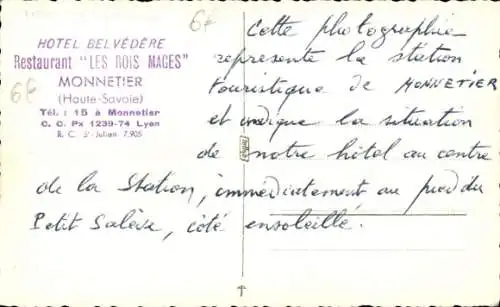 HOTEL BELVÉDÈRE
Restaurant "LES ROIS MAGES"
MONNETIER
(Haute-Savoie)
Tél. : 15 à Monnetier
C. C. Px 1239-74 Lyon
R. C. St-Julien 7.905
6f
6f
Cette photographie
représente la station
touristique de MONNETIER
et indique la situation
de notre hôtel au centre
de la Station, immédiatement au pied du
Petit Salève, côté ensoleillé.